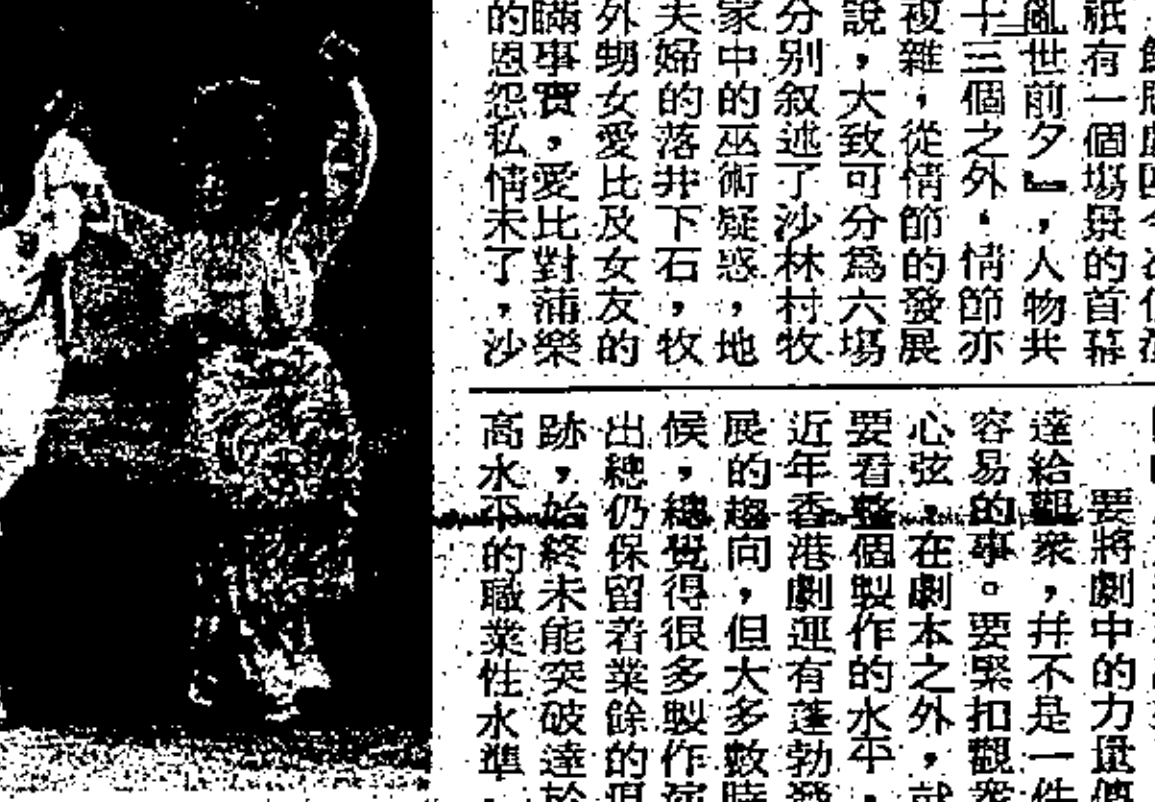 祇有一個場景的首幕
亂世前夕』，人物共
十三個之外，情節亦
複雜，從情節的發展
說，大致可分爲六場
分别叙述了沙林村牧
家中的巫術疑惑，地
夫婦的落井下石，牧
外甥女愛比及女友的
瞞事實，愛比對蒲樂
的恩怨私情未了，沙
要將劇中的力量傳
達給觀衆，幷不是一件
容易的事。要緊扣觀衆
心弦，在劇本之外，就
要看整個製作的水平，
近年香港劇運有蓬勃發
展的趨向，但大多數時
候，總覺得很多製作演
出總仍保留着業餘的痕
跡，始終未能突破達於
高水平的職業性水準，